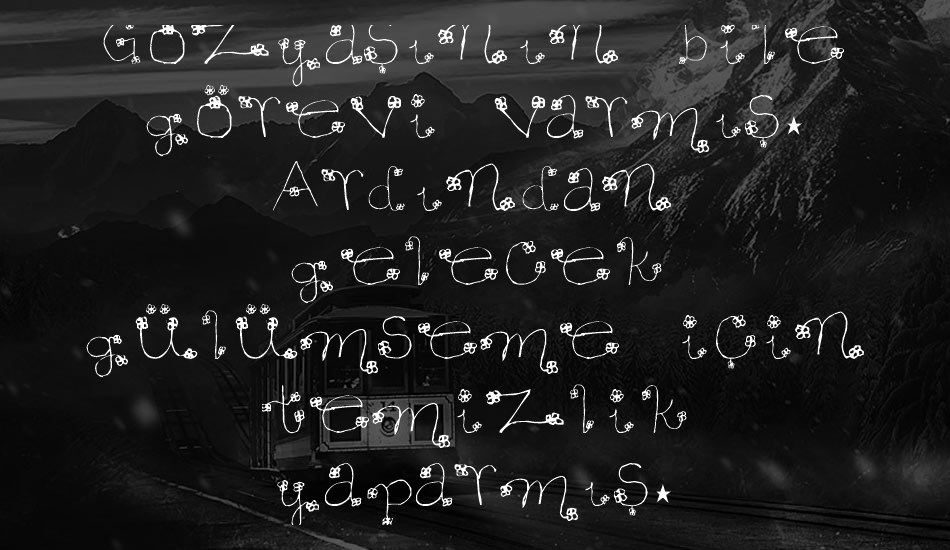 Gözyaşının bile
görevi varmış.
Ardından
gelecek
gülümseme için
temizlik
yaparmış.